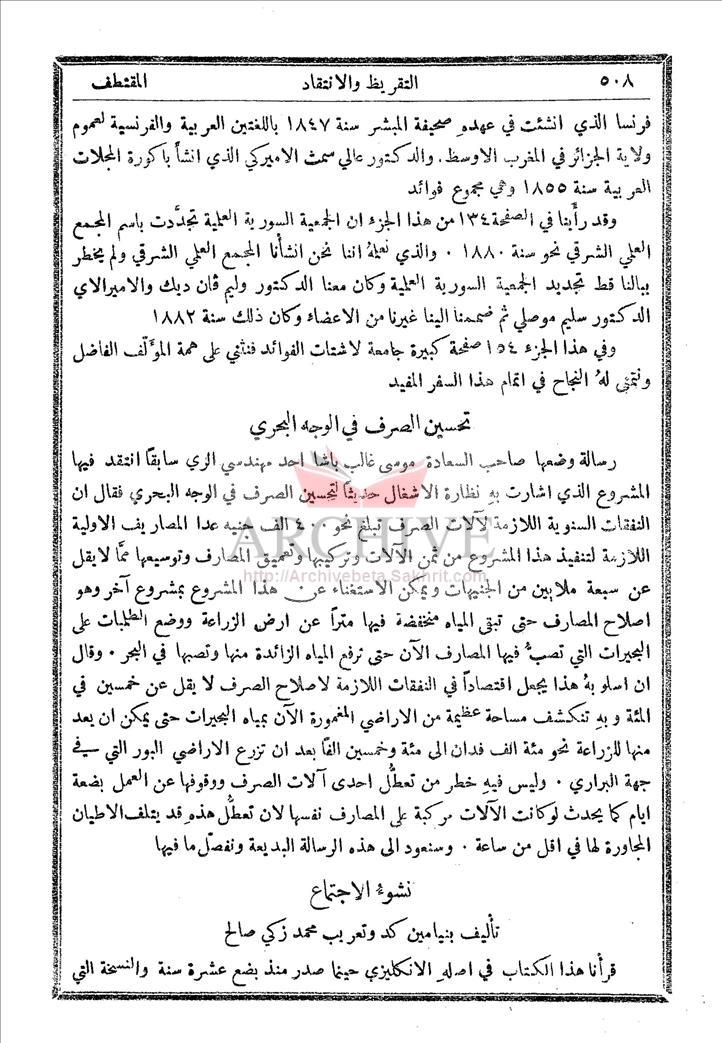 ٥٠٨ التقريظ والانتقاد المقتطف
فرنسا الذي انشئت في عهدهِ صحيفة المبشر سنة ١٨٤٧ باللغتين العربية والفرنسية لعموم
ولاية الجزائر في المغرب الاوسط. والدكتور عالي سمث الاميركي الذي انشأ باكورة المجلات
العربية سنة ١٨٥٥ وهي مجموع فوائد
وقد رأينا في الصفحة ١٣٤ من هذا الجزء ان الجمعية السورية العلمية تجدَّدت باسم المجمع
العلمي الشرقي نحو سنة ١٨٨٠ . والذي نعلمهُ اننا نحن انشأنا المجمع العلمي الشرقي ولم يخطر
ببالنا قط تجديد الجمعية السورية العلمية وكان معنا الدكتور وليم ڤان ديك والاميرالاي
الدكتور سليم موصلي ثم ضممنا الينا غيرنا من الاعضاء وكان ذلك سنة ١٨٨٢
وفي هذا الجزء ١٥٤ صفحة كبيرة جامعة لاشتات الفوائد فنثني على همة المؤلّف الفاضل
ونتمنى لهُ النجاح في اتمام هذا السفر المفيد
تحسين الصرف في الوجه البحري
رسالة وضعها صاحب السعادة موسى غالب باشا احد مهندسي الري سابقًا انتقد فيها
المشروع الذي اشارت بهِ نظارة الاشغال حديثًا لتحسين الصرف في الوجه البحري فقال ان
النفقات السنوية اللازمة لآلات الصرف تبلغ نحو ٤٠٠ الف جنيه عدا المصاريف الاولية
اللازمة لتنفيذ هذا المشروع من ثمن الآلات وتركيبها وتعميق المصارف وتوسيعها ممَّا لا يقل
عن سبعة ملايين من الجنيهات ويمكن الاستغناء عن هذا المشروع بمشروع آخر وهو
اصلاح المصارف حتى تبقى المياه منخفضة فيها مترًا عن ارض الزراعة ووضع الطلمبات على
البحيرات التي تصبُّ فيها المصارف الآن حتى ترفع المياه الزائدة منها وتصبها في البحر . وقال
ان اسلوبهُ هذا يجعل اقتصادًا في النفقات اللازمة لاصلاح الصرف لا يقل عن خمسين في
المئة وبهِ تنكشف مساحة عظيمة من الاراضي المغمورة الآن بمياه البحيرات حتى يمكن ان يعد
منها للزراعة نحو مئة الف فدان الى مئة وخمسين الفًا بعد ان تزرع الاراضي البور التي في
جهة البراري . وليس فيهِ خطر من تعطُّل احدى آلات الصرف ووقوفها عن العمل بضعة
ايام كما يحدث لو كانت الآلات مركبة على المصارف نفسها لان تعطُّل هذه قد يتلف الاطيان
المجاورة لها في اقل من ساعة . وسنعود الى هذه الرسالة البديعة ونفصّل ما فيها
نشوءُ الاجتماع
تأليف بنيامين كد وتعريب محمد زكي صالح
قرأنا هذا الكتاب في اصلهِ الانكليزي حينما صدر منذ بضع عشرة سنة والنسخة التي
ARCHIVE
http://Archivebeta.Sakhrit.com